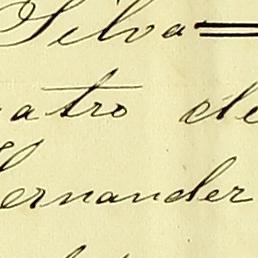 Silva
atro de
ernander